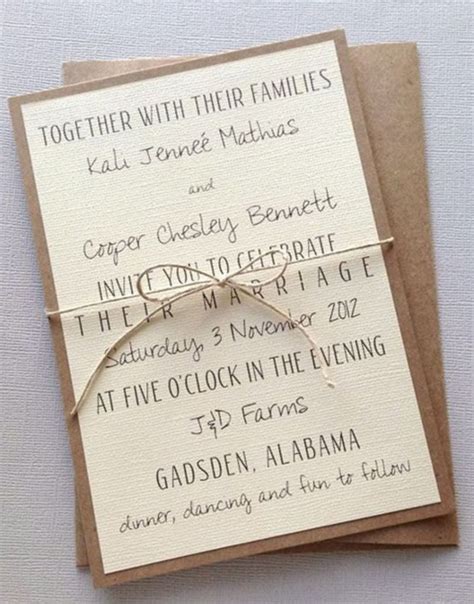 TOGETHER WITH THEIR FAMILIES
Kali Jenneé Mathias
and
Cooper Chesley Bennett
INVITE YOU TO CELEBRATE
THEIR MARRIAGE
Saturday 3 November 2012
AT FIVE O'CLOCK IN THE EVENING
J&D Farms
GADSDEN, ALABAMA
dinner, dancing and fun to follow